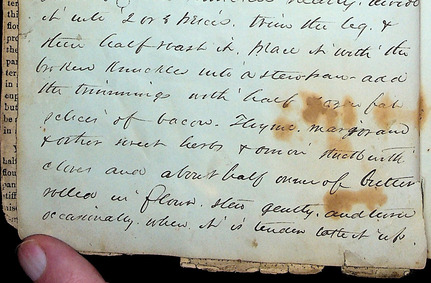 it into 2 or 3 pieces. trim the leg. &
then half roast it, place it with the
broken knuckle into a stewpan - add
the trimmings with half fat
slices of bacon. Thyme. marjoram
& other sweet herbs & onion stuck with
cloves and about half ounce of butter
rolled in flour. stew gently. and turn
occasionally. when it is tender take it up.